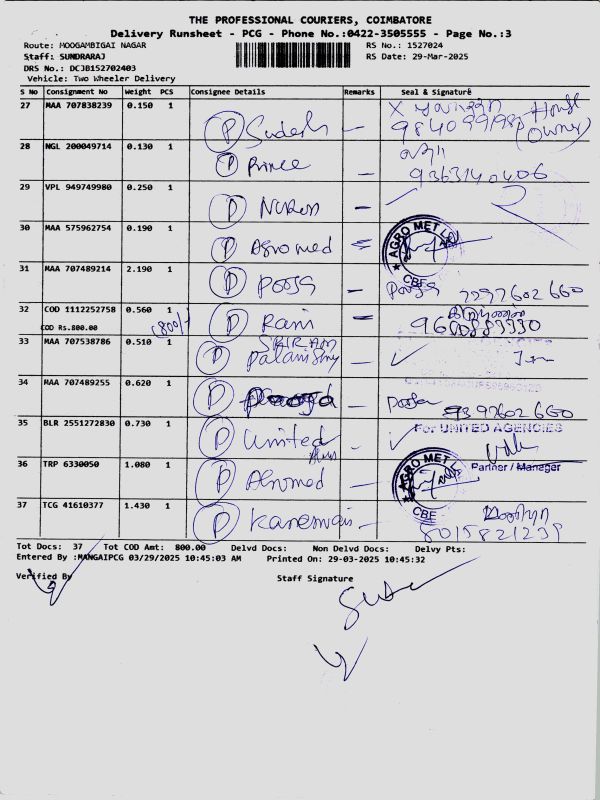 THE PROFESSIONAL COURIERS, COIMBATORE
Delivery Runsheet - PCG - Phone No.:0422-3505555 - Page No.:3
Route: MOOGAMBIGAI NAGAR RS No.: 1527024
Staff: SUNDRARAJ RS Date: 29-Mar-2025
DRS No.: DCJB152702403
Vehicle: Two Wheeler Delivery
S No Consignment No Weight PCS Consignee Details Remarks Seal & Signature
27 MAA 707838239 0.150 1 P Sudesh
(Owner)
28 NGL 200049714 0.130 1 P Prince
9363140406
29 VPL 949749980 0.250 1 P
30 MAA 575962754 0.190 1 P Agromed AGRO MET CBE
31 MAA 707489214 2.190 1 P Pooja Pooja
32 COD 1112252758 0.560 1 P Rani
COD Rs.800.00 (800/-)
33 MAA 707538786 0.510 1 P SRIRAM
34 MAA 707489255 0.620 1 P Pooja Pooja
35 BLR 2551272830 0.730 1 P United For UNITED AGENCIES
Partner / Manager
36 TRP 6330050 1.080 1 P AGRO MET CBE
37 TCG 41610377 1.430 1 P
8015821239
Tot Docs: 37 Tot COD Amt: 800.00 Delvd Docs: Non Delvd Docs: Delvy Pts:
Entered By :MANGAIPCG 03/29/2025 10:45:03 AM Printed On: 29-03-2025 10:45:32
Verified By Staff Signature